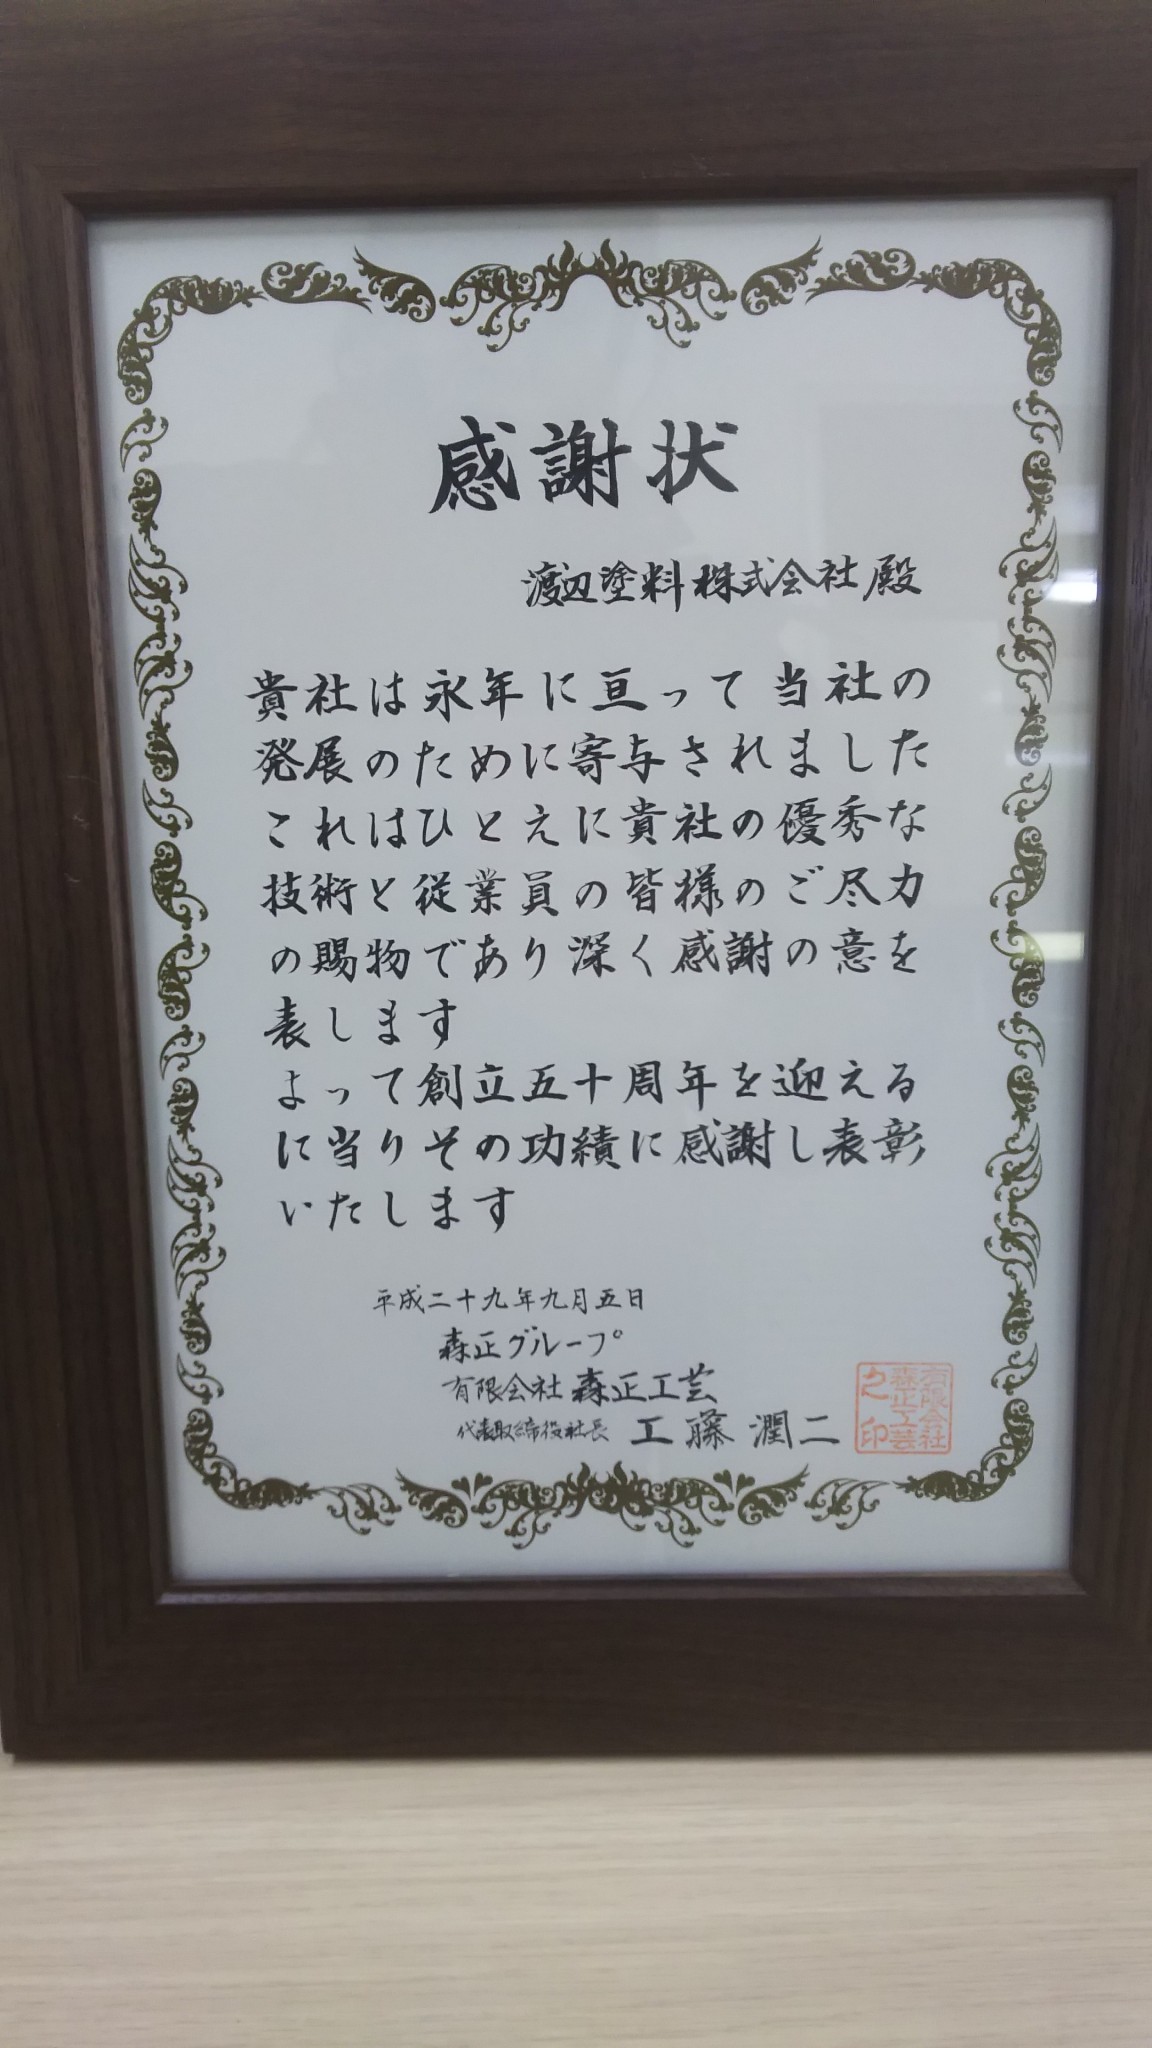 感謝状
渡辺塗料株式会社殿
貴社は永年に亘って当社の
発展のために寄与されました
これはひとえに貴社の優秀な
技術と従業員の皆様のご尽力
の賜物であり深く感謝の意を
表します
よって創立五十周年を迎える
に当りその功績に感謝し表彰
いたします
平成二十九年九月五日
森正グループ
有限会社 森正工芸
代表取締役社長 工藤潤二
有限会社
森正工芸
之印